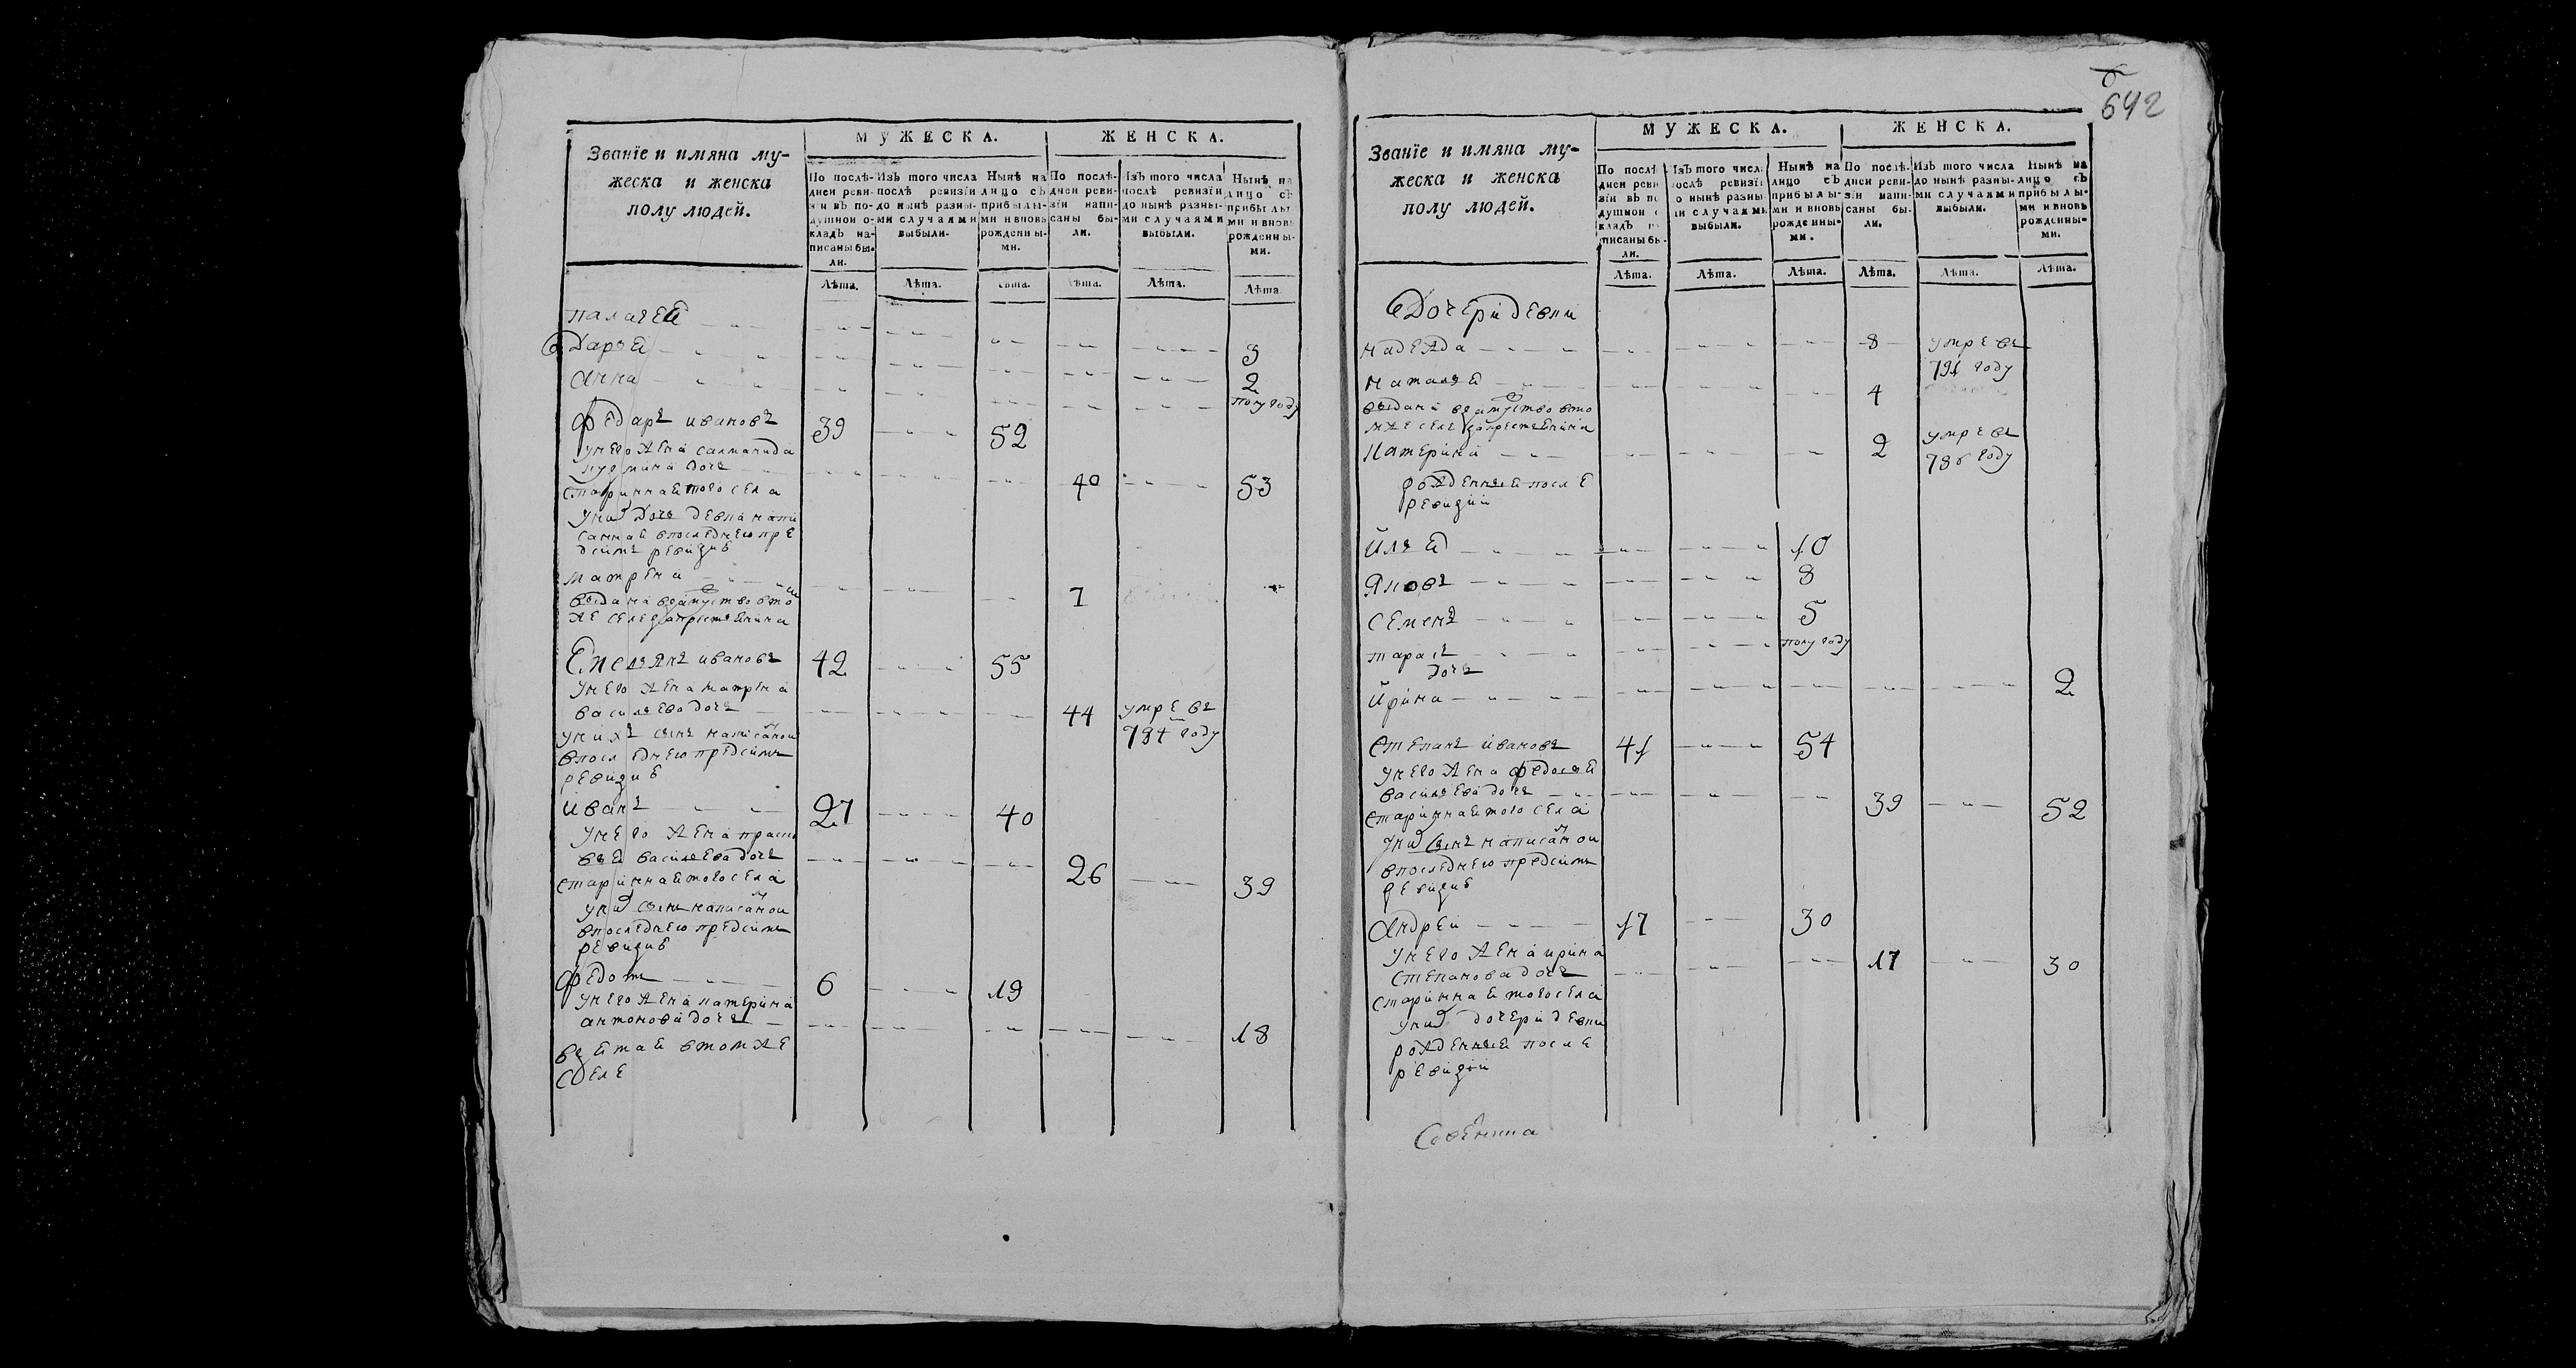 Званїе и имяна му-
жеска и женска
полу людей.
МУЖЕСКА.
ЖЕНСКА.
По послѣ-
дней реви-
зїи въ по-
душной о-
кладъ на-
писаны бы-
ли.
Изъ того числа
послѣ ревизїи
до нынѣ разны-
ми случаями
выбыли.
Нынѣ на
лицо съ
прибылы-
ми и вновь
рожденны-
ми.
По послѣ-
дней реви-
зїи напи-
саны бы-
ли.
Изъ того числа
послѣ ревизїи
до нынѣ разны-
ми случаями
выбыли.
Нынѣ на
лицо съ
прибылы-
ми и вновь
рожденны-
ми.
Лѣта. Лѣта. Лѣта. Лѣта. Лѣта. Лѣта.
палагея
дарья 3
анна 2
полугоду
Федаръ ивановъ 39 52
унего жена саламанида
дочь
старинная того села 40 53
уних дочь девка напи
санная впоследнею пре
дсимъ ревизиѣ
матрена 7
выдана взамуство втом
же селе закрестьянина
Емельянъ ивановъ 42 55
унего жена матрена
васильева дочь 44 умре въ
794 году
унихъ сынъ написанои
впоследнею предсимъ
ревизиѣ
иванъ 27 40
унего жена праско
вья васильева дочь
старинная того села 26 39
уних сынъ написанои
впоследнею предсимъ
ревизиѣ
федотъ 6 19
унего жена катерина
антонова дочь 18
взятая втомже
селе
642
Званїе и имяна му-
жеска и женска
полу людей.
МУЖЕСКА.
ЖЕНСКА.
По послѣ
дней реви
зїи въ по
душной о
кладъ на
писаны бы
ли.
Изъ того числа
послѣ ревизїи
до нынѣ разны
ми случаями
выбыли.
Нынѣ на
лицо съ
прибылы-
ми и вновь
рожденны-
ми.
По послѣ-
дней реви-
зїи напи-
саны бы-
ли.
Изъ того числа
до нынѣ разны-
ми случаями
выбыли.
Нынѣ на
лицо съ
прибылы-
ми и вновь
рожденны-
ми.
Лѣта. Лѣта. Лѣта. Лѣта. Лѣта. Лѣта.
Дочери девки
надежда 8 умре въ
791 году
наталья 4
выдана взамуство вто
мже селе закрестьянина
катерина 2 умре въ
786 году
рожденныя после
ревизии
илья 10
яковъ 8
семенъ 5
тарасъ полугоду
дочь
ирина 2
степанъ ивановъ 41 54
унего жена федосья
васильева дочь
старинная того села 39 52
уних сынъ написанои
впоследнею предсимъ
ревизиѣ
андреи 17 30
унего жена ирина
степанова дочь 17 30
старинная тогосела
уних дочери девки
рожденныя после
ревизии